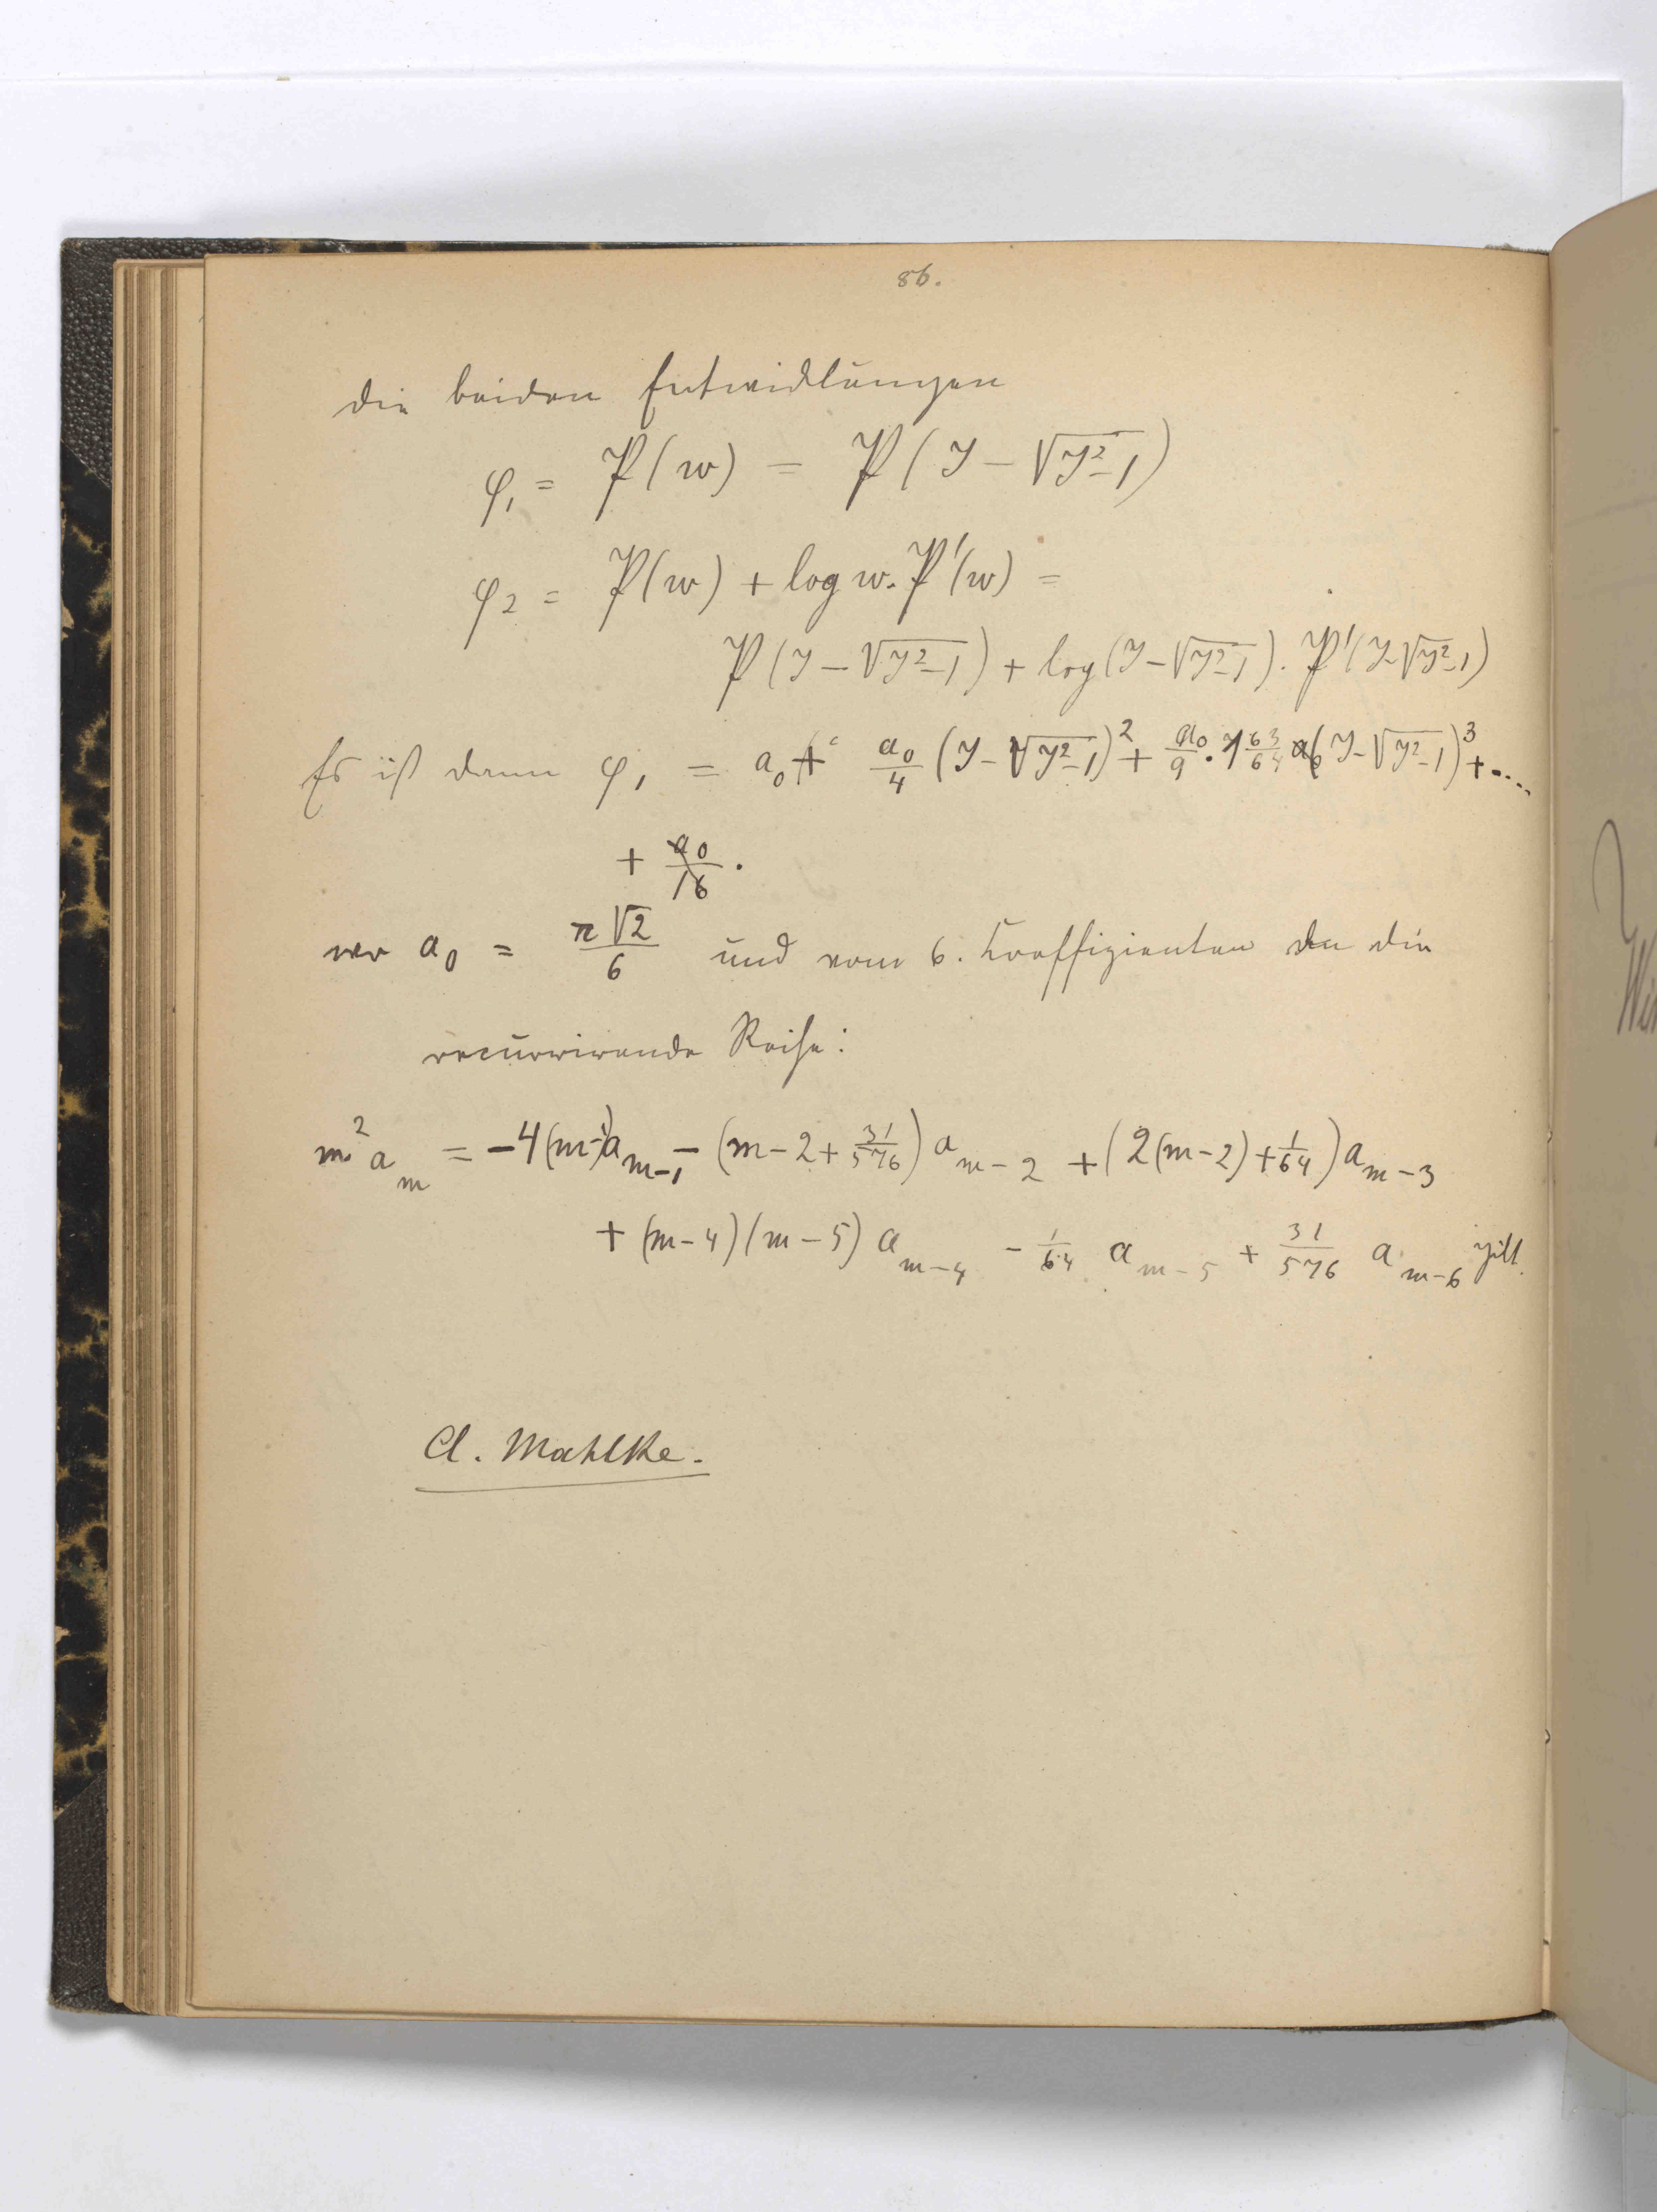 86.
die beiden Entwicklungen
φ₁ = P(w) = P(y − √(y²−1))
φ₂ = P(w) + log w. P'(w) =
P(y − √(y²−1)) + log(y − √(y²−1)). P'(y−√(y²−1))
Es ist dann φ₁ = a₀ + a₀/4 (y − √(y²−1))² + a₀/9 . 1 63/64 (y − √(y²−1))³ + ....
+ a₀/16 .
wo a₀ = π√2/6 und vom 6. Coeffizienten an die
recurrirende Reihe:
m² a_m = −4(m−1)a_{m−1} − (m−2+31/576) a_{m−2} + (2(m−2)+1/64) a_{m−3}
+ (m−4)(m−5) a_{m−4} − 1/64 a_{m−5} + 31/576 a_{m−6} gilt.
A. Mahlke.